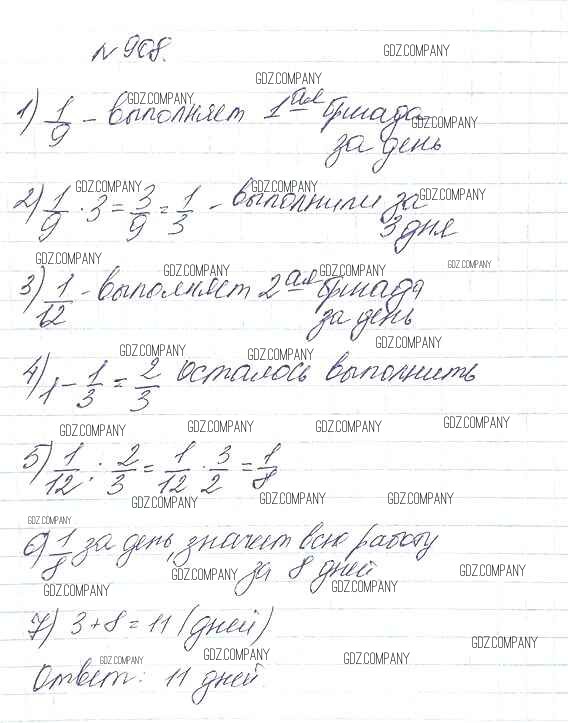 № 908.
GDZ.COMPANY
GDZ.COMPANY
GDZ.COMPANY
1) 1/9 - выполняет 1 ая бригада
GDZ.COMPANY
за день
GDZ.COMPANY GDZ.COMPANY GDZ.COMPANY
2) 1/9 · 3 = 3/9 = 1/3 - выполнили за
3 дня
GDZ.COMPANY GDZ.COMPANY GDZ.COMPANY GDZ.COMPANY
3) 1/12 - выполняет 2 ая бригада
за день
GDZ.COMPANY GDZ.COMPANY GDZ.COMPANY
4) 1 - 1/3 = 2/3 осталось выполнить
GDZ.COMPANY GDZ.COMPANY GDZ.COMPANY GDZ.COMPANY
5) 1/12 : 2/3 = 1/12 · 3/2 = 1/8
GDZ.COMPANY GDZ.COMPANY GDZ.COMPANY
GDZ.COMPANY
6) 1/8 за день, значит всю работу
за 8 дней
GDZ.COMPANY GDZ.COMPANY GDZ.COMPANY GDZ.COMPANY
7) 3 + 8 = 11 (дней)
GDZ.COMPANY GDZ.COMPANY GDZ.COMPANY GDZ.COMPANY
Ответ: 11 дней